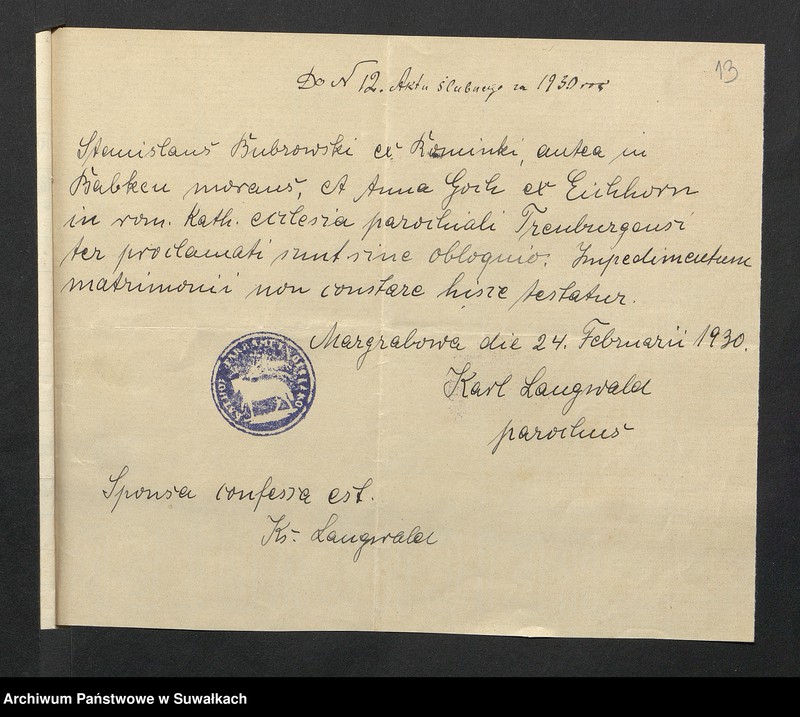 Do N 12. Aktu ślubnego za 1930 rok
13
Stanislaus Bubrowski ex Kominki, antea in
Babken morans, et Anna Goih ex Eichhorn
in rom. Kath. ecclesia parochiali Treuburgensi
ter proclamati sunt sine obloquio. Impedimentum
matrimonii non constare hisce testatur.
Margrabowa die 24. Februarii 1930.
Karl Langwald
parochus
Sponsa confessa est.
Ks. Langwald
Archiwum Państwowe w Suwałkach